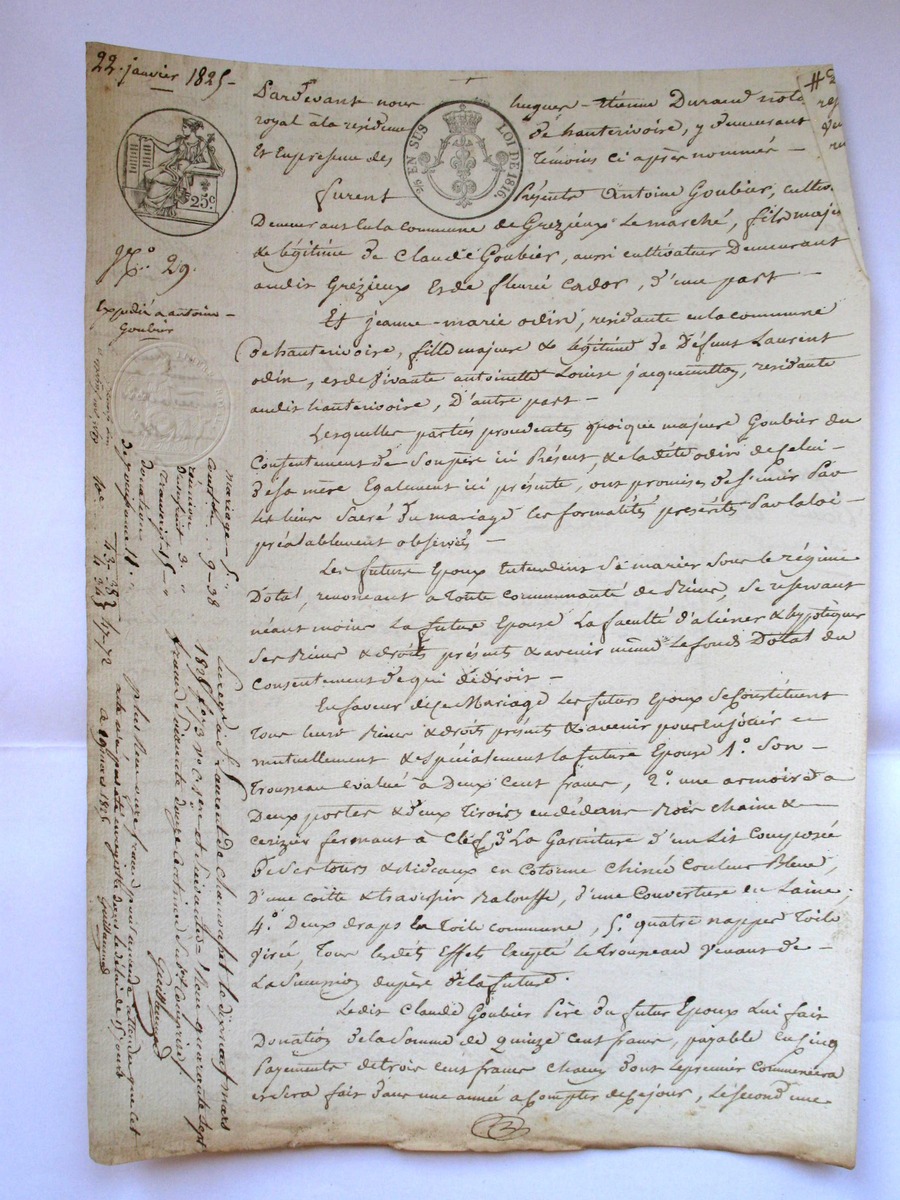 22. janvier 1825 -
Pardevant nous hugues - étienne Durand nota
royal à la résidence de hauterivoire, y demeurant
Et En presence des Témoins Ci après nommés -
EN SUS
LOI DE 1816.
25c.
furent Présents Antoine Goubier, cultiv
Demeurant en la commune de Grezieux Le marché, fils maj
& légitime de Claude Goubier, aussi cultivateur Demeurant
audit Grézieux Et de fleurie Cador, d'une part -
Rep.o 29.
Et jeanne - marie odin, residante en la commune
Expédié a antoine -
Goubier
de hauterivoire, fille majeure & légitime de Défunt Laurent
odin, et de vivante antoinette Louise residante
audit hauterivoire, D'autre part -
Lesquelles parties procedentes quoique majeurs Goubier du
Consentement de Son père ici Présent, & la dite odin de Celui -
de sa mère Egalement ici présente, ont promis de S'unir Par
les liens Sacré du mariage les formalités prescrites Par la loi -
préalablement observées -
Les future Epoux Entendent Se marier Sous le régime
Dotal, renonçant a Toute Communauté de Biens, Se reservant
néant moins La future Epouse La faculté d'aliéner & hypotéquer
Ses Biens & droits présents & avenir même Le fond Dottal du
Consentement de qui de droit -
En faveur de Ce Mariage Les futurs Epoux Se Constituent
Tous leurs Biens & droits présents & avenir pour En jouir
mutuellement & Spécialement la future Epouse 1.o Son -
Trousseau évalué à Deux Cent francs, 2.o une armoire a
Deux portes & deux Tiroirs en dédans Bois Chaine &
Cerizier fermant à Clef 3.o La Garniture d'un Lit Composée
de Ses tours & rideaux en Cotonne Chinée Couleur Bleue,
d'une Coitte & traversin Balouffe, d'une Couverture en Laine,
4.o Deux draps en Toile commune, 5.o quatre nappes Toile
Tous lesdits Effets Excepté le Trousseau venant de -
La Succession du père de la future.
Ledit Claude Goubier Père du futur Epoux Lui fait
Donation de la Somme de Quinze Cent francs, payable en Cinq
Payements de trois Cent francs Chacun dont le premier Commencera
et Sera fait dans une année a Compter de Ce jour, Le Second une
mariage - 5.
9 - 38
réunion
d'usufruit 3 "
donation
43 - 38
Enregistré à St Laurent de Chamousset le dix neuf mars
1825
reçu quarante Sept
francs Soixante douze Centimes Subv.on Comprise.
Guillaumod
Plus
attendu que Cet
acte n'a pas été enregistré dans le délai de 15 jours
19 mars 1825
Guillaumod